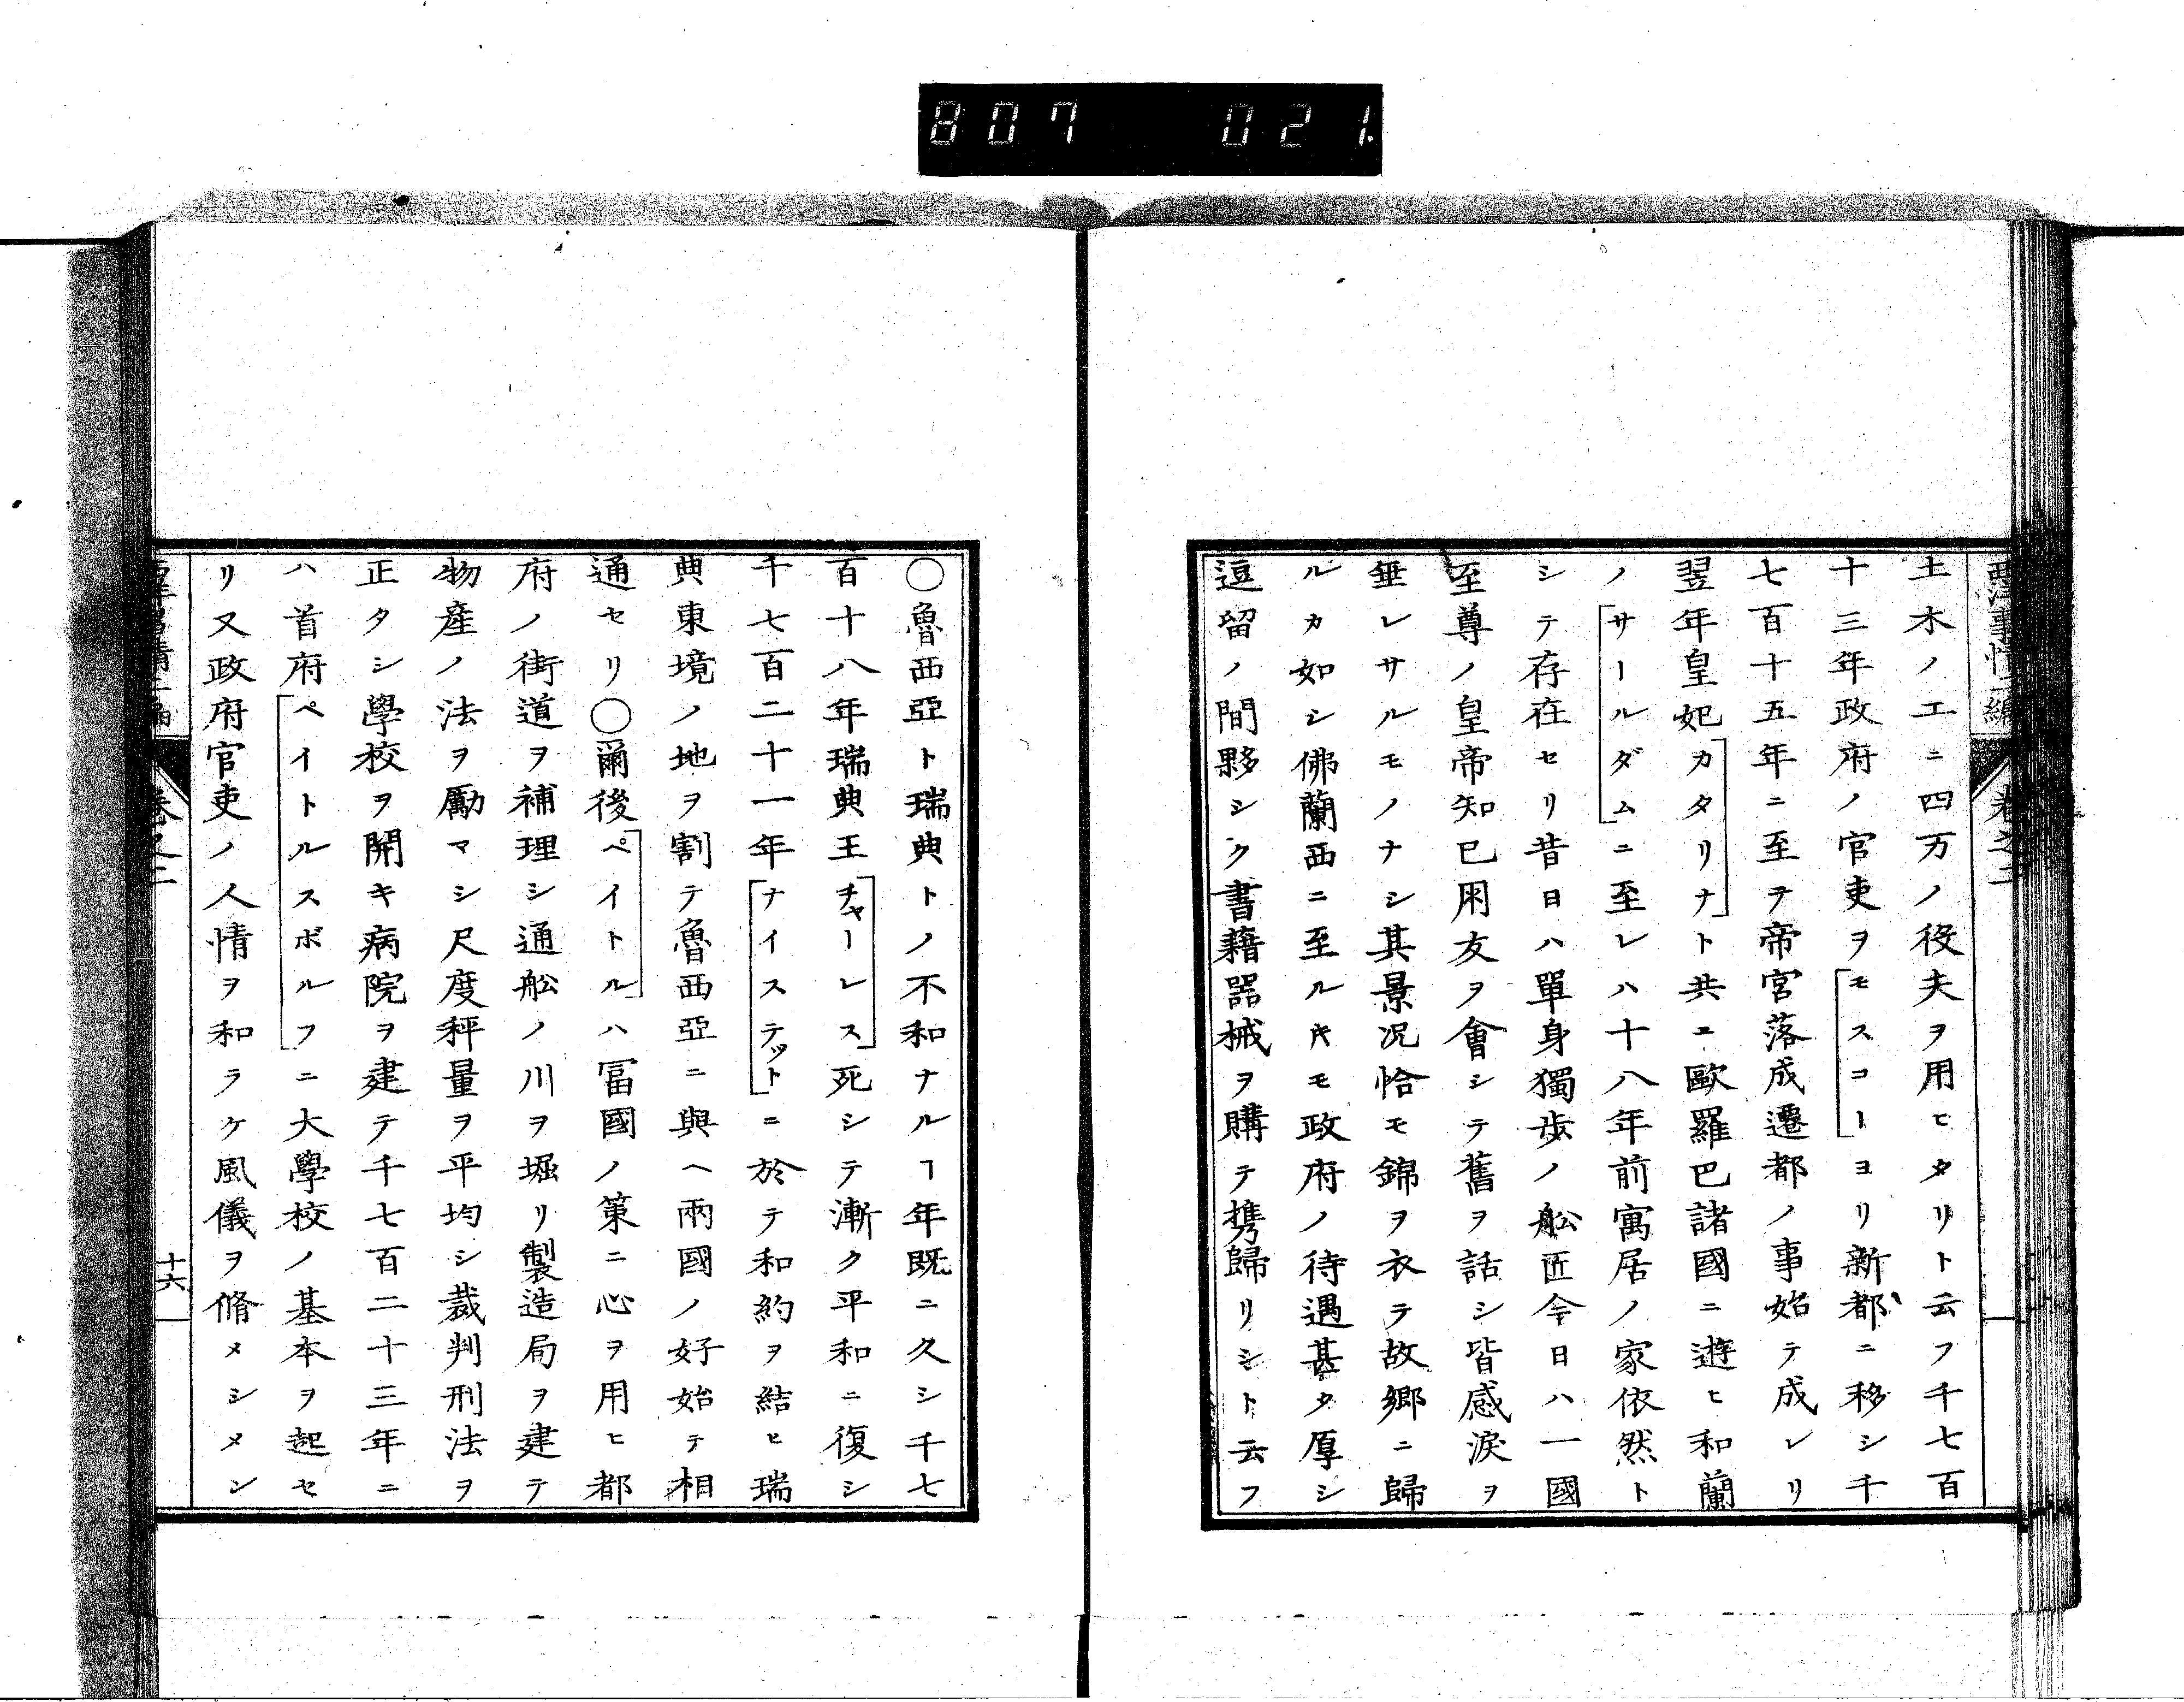 807 021.
西洋事情二編 卷之二
土木ノ工ニ四万ノ役夫ヲ用ヒタリト云フ千七百
十三年政府ノ官吏ヲ「モスコー」ヨリ新都ニ移シ千
七百十五年ニ至テ帝宮落成遷都ノ事始テ成レリ
翌年皇妃「カタリナ」ト共ニ歐羅巴諸國ニ遊ヒ和蘭
ノ「サールダム」ニ至レハ十八年前寓居ノ家依然ト
シテ存在セリ昔日ハ單身獨歩ノ舩匠今日ハ一國
至尊ノ皇帝知己朋友ヲ會シテ舊ヲ話シ皆感淚ヲ
垂レサルモノナシ其景況恰モ錦ヲ衣テ故郷ニ歸
ルカ如シ佛蘭西ニ至ル𪜈政府ノ待遇甚タ厚シ
逗留ノ間夥シク書籍器械ヲ購テ携歸リシト云フ
〇魯西亞ト瑞典トノ不和ナルヿ年既ニ久シ千七
百十八年瑞典王「チャーレス」死シテ漸ク平和ニ復シ
千七百二十一年「ナイステット」ニ於テ和約ヲ結ヒ瑞
典東境ノ地ヲ割テ魯西亞ニ與ヘ兩國ノ好始テ相
通セリ〇爾後「ペイトル」ハ冨國ノ策ニ心ヲ用ヒ都
府ノ街道ヲ補理シ通舩ノ川ヲ堀リ製造局ヲ建テ
物産ノ法ヲ勵マシ尺度秤量ヲ平均シ裁判刑法ヲ
正タシ學校ヲ開キ病院ヲ建テ千七百二十三年ニ
ハ首府「ペイトルスボルフ」ニ大學校ノ基本ヲ起セ
リ又政府官吏ノ人情ヲ和ラケ風儀ヲ脩メシメン
卷之二
十六